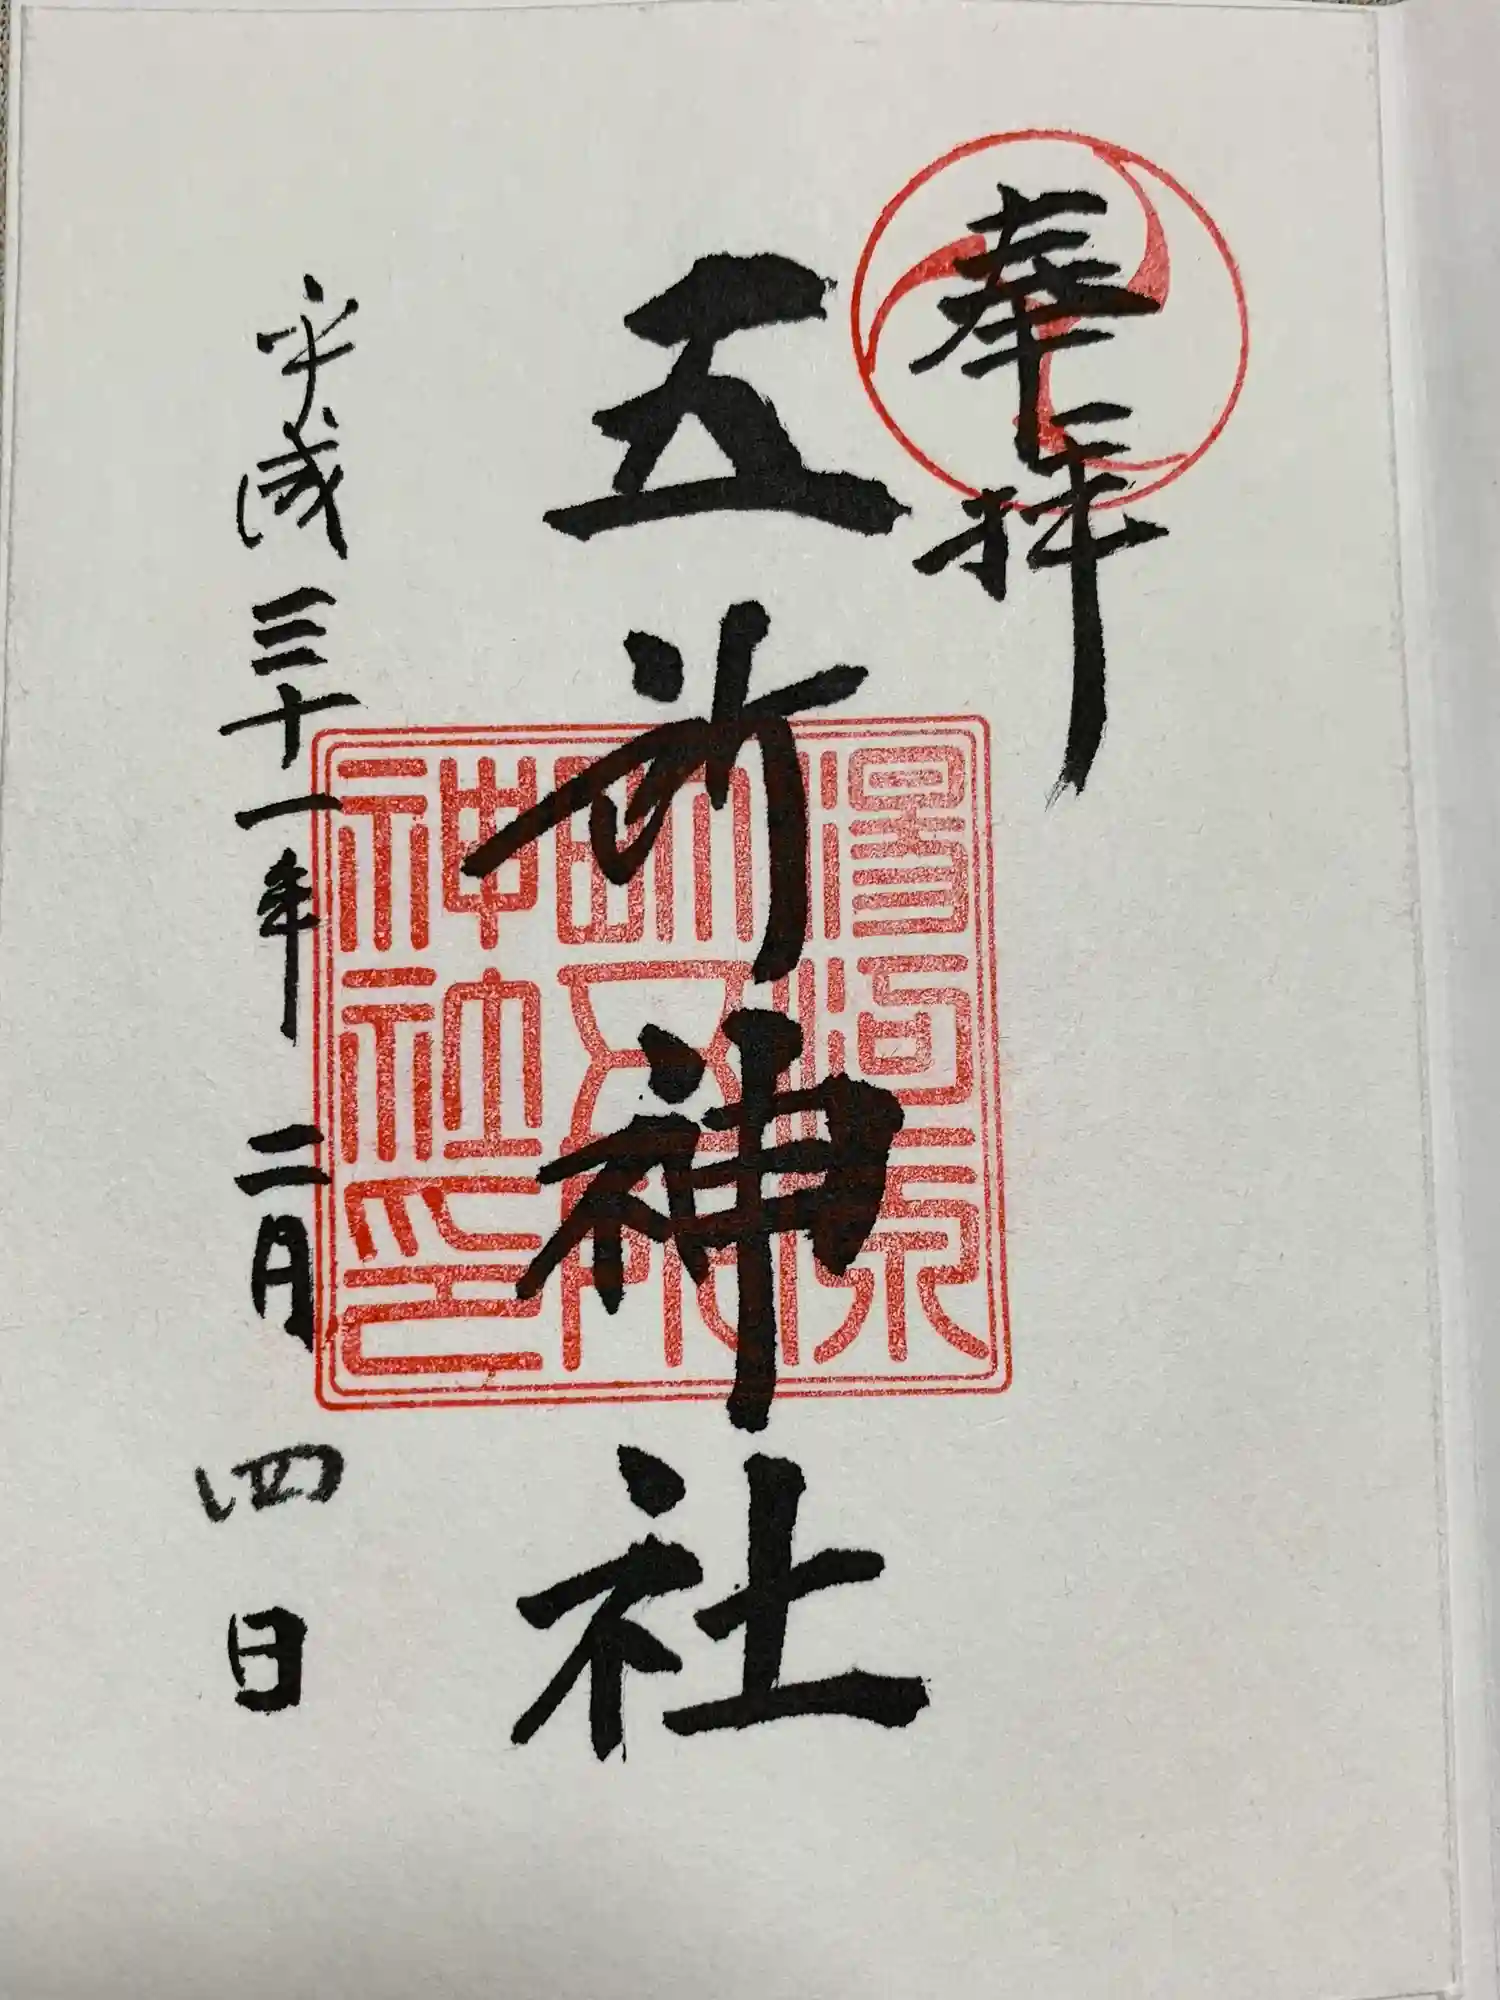 奉拝
五所神社
湯河原
五所
神社印
平成三十一年二月四日